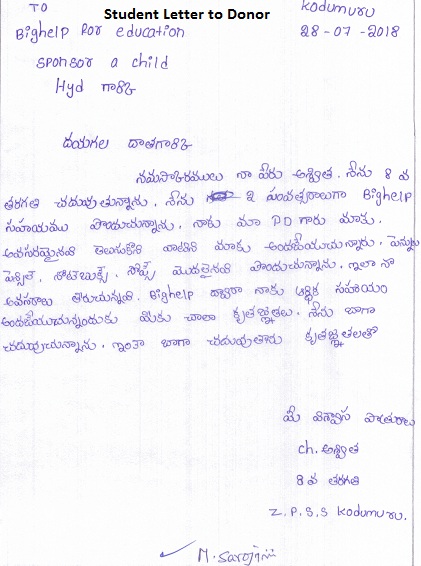 Student Letter to Donor
TO
Kodumuru
Bighelp for education
28-07-2018
sponsor a child
Hyd గారికి
దయగల దాతగారికి
నమస్కారములు నా పేరు అశ్విత. నేను 8 వ
తరగతి చదువుతున్నాను. నేను 2 సంవత్సరాలుగా Bighelp
సహాయము పొందుచున్నాను. నాకు మా PD గారు మాకు.
అవసరమైనవి తెలుసుకొని వాటిని మాకు అందజేయుచున్నారు. పెన్ను
పెన్సిల్, నోట్‌బుక్స్, సోప్స్ మొదలైనవి పొందుచున్నాను. ఇలా నా
అవసరాలు తీరుచున్నవి. Bighelp ద్వారా నాకు ఆర్థిక సహాయం
అందజేయుచున్నందుకు మీకు చాలా కృతజ్ఞతలు. నేను బాగా
చదువుచున్నాను. ఇంకా బాగా చదువుతాను కృతజ్ఞతలతో
మీ విశ్వాస పాత్రురాలు
ch. అశ్విత
8 వ తరగతి
Z.P.S.S Kodumuru.
M. Sarojini